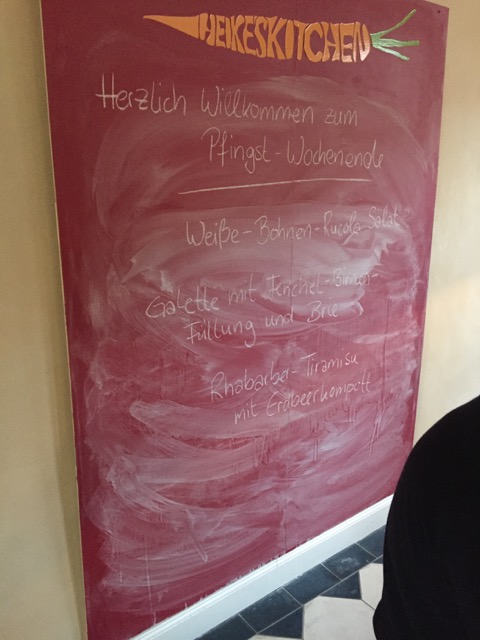 HEIKESKITCHEN
Herzlich Willkommen zum
Pfingst-Wochenende
Weiße-Bohnen-Rucola Salat
Galette mit Fenchel-Birnen-
Füllung und Brie
Rhabarber-Tiramisu
mit Erdbeerkompott